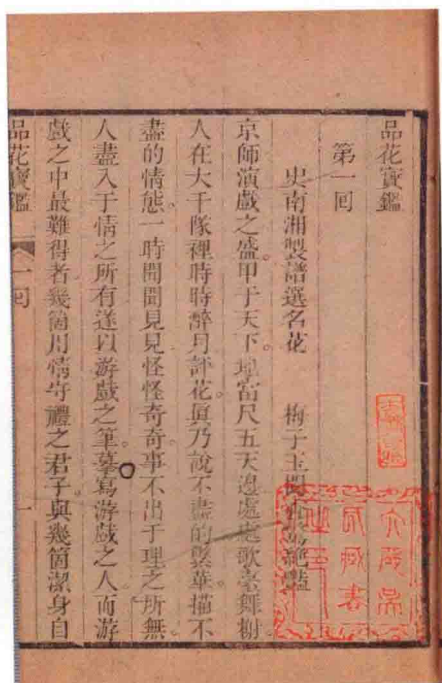 品花寶鑑
第一回
史南湘製譜選名花　梅子玉聞絕豔
京師演戲之盛。甲于天下。地當尺五天邊。處處歌臺舞榭。
人在大千隊裡。時時醉月評花。眞乃說不盡的繁華。描不
盡的情態。一時聞聞見見。怪怪奇奇。事不出于理之所無。
人盡入于情之所有。遂以游戲之筆。摹寫游戲之人。而游
戲之中。最難得者。幾箇用情守禮之君子。與幾箇潔身自
品花寶鑑　一回　一